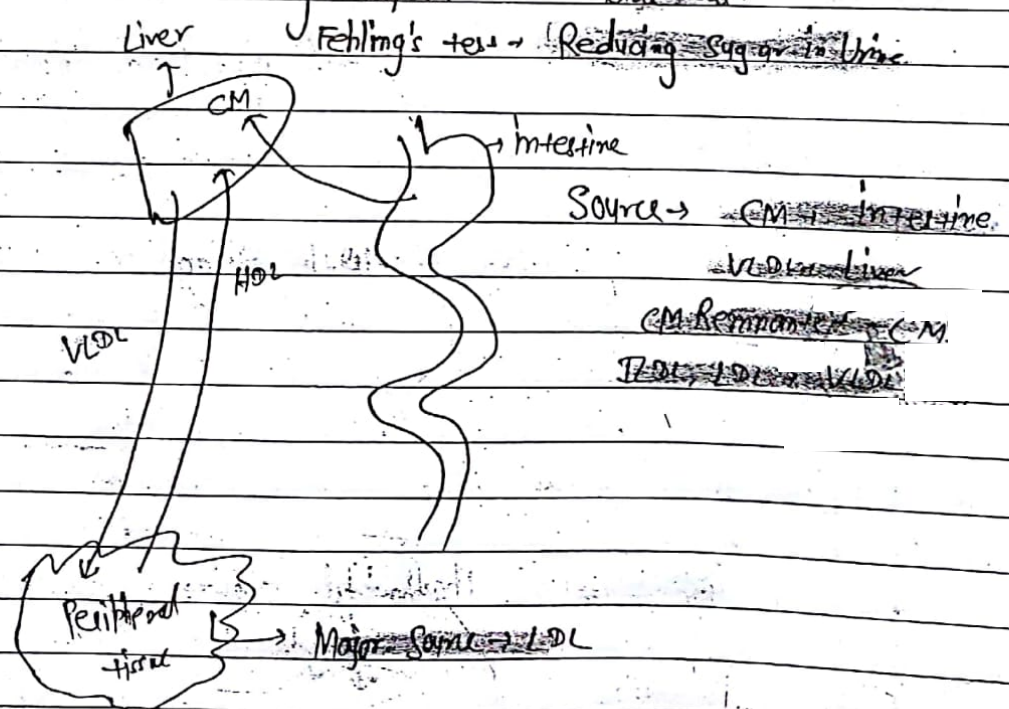 Liver
Fehling's test → Reducing Sugar in Urine.
CM
→ intestine
Source → CM → Intestine
VLDL → Liver
HDL
CM Remnant → CM.
VLDL
IDL, LDL → VLDL
Peripheral
tissue
→ Major Source → LDL